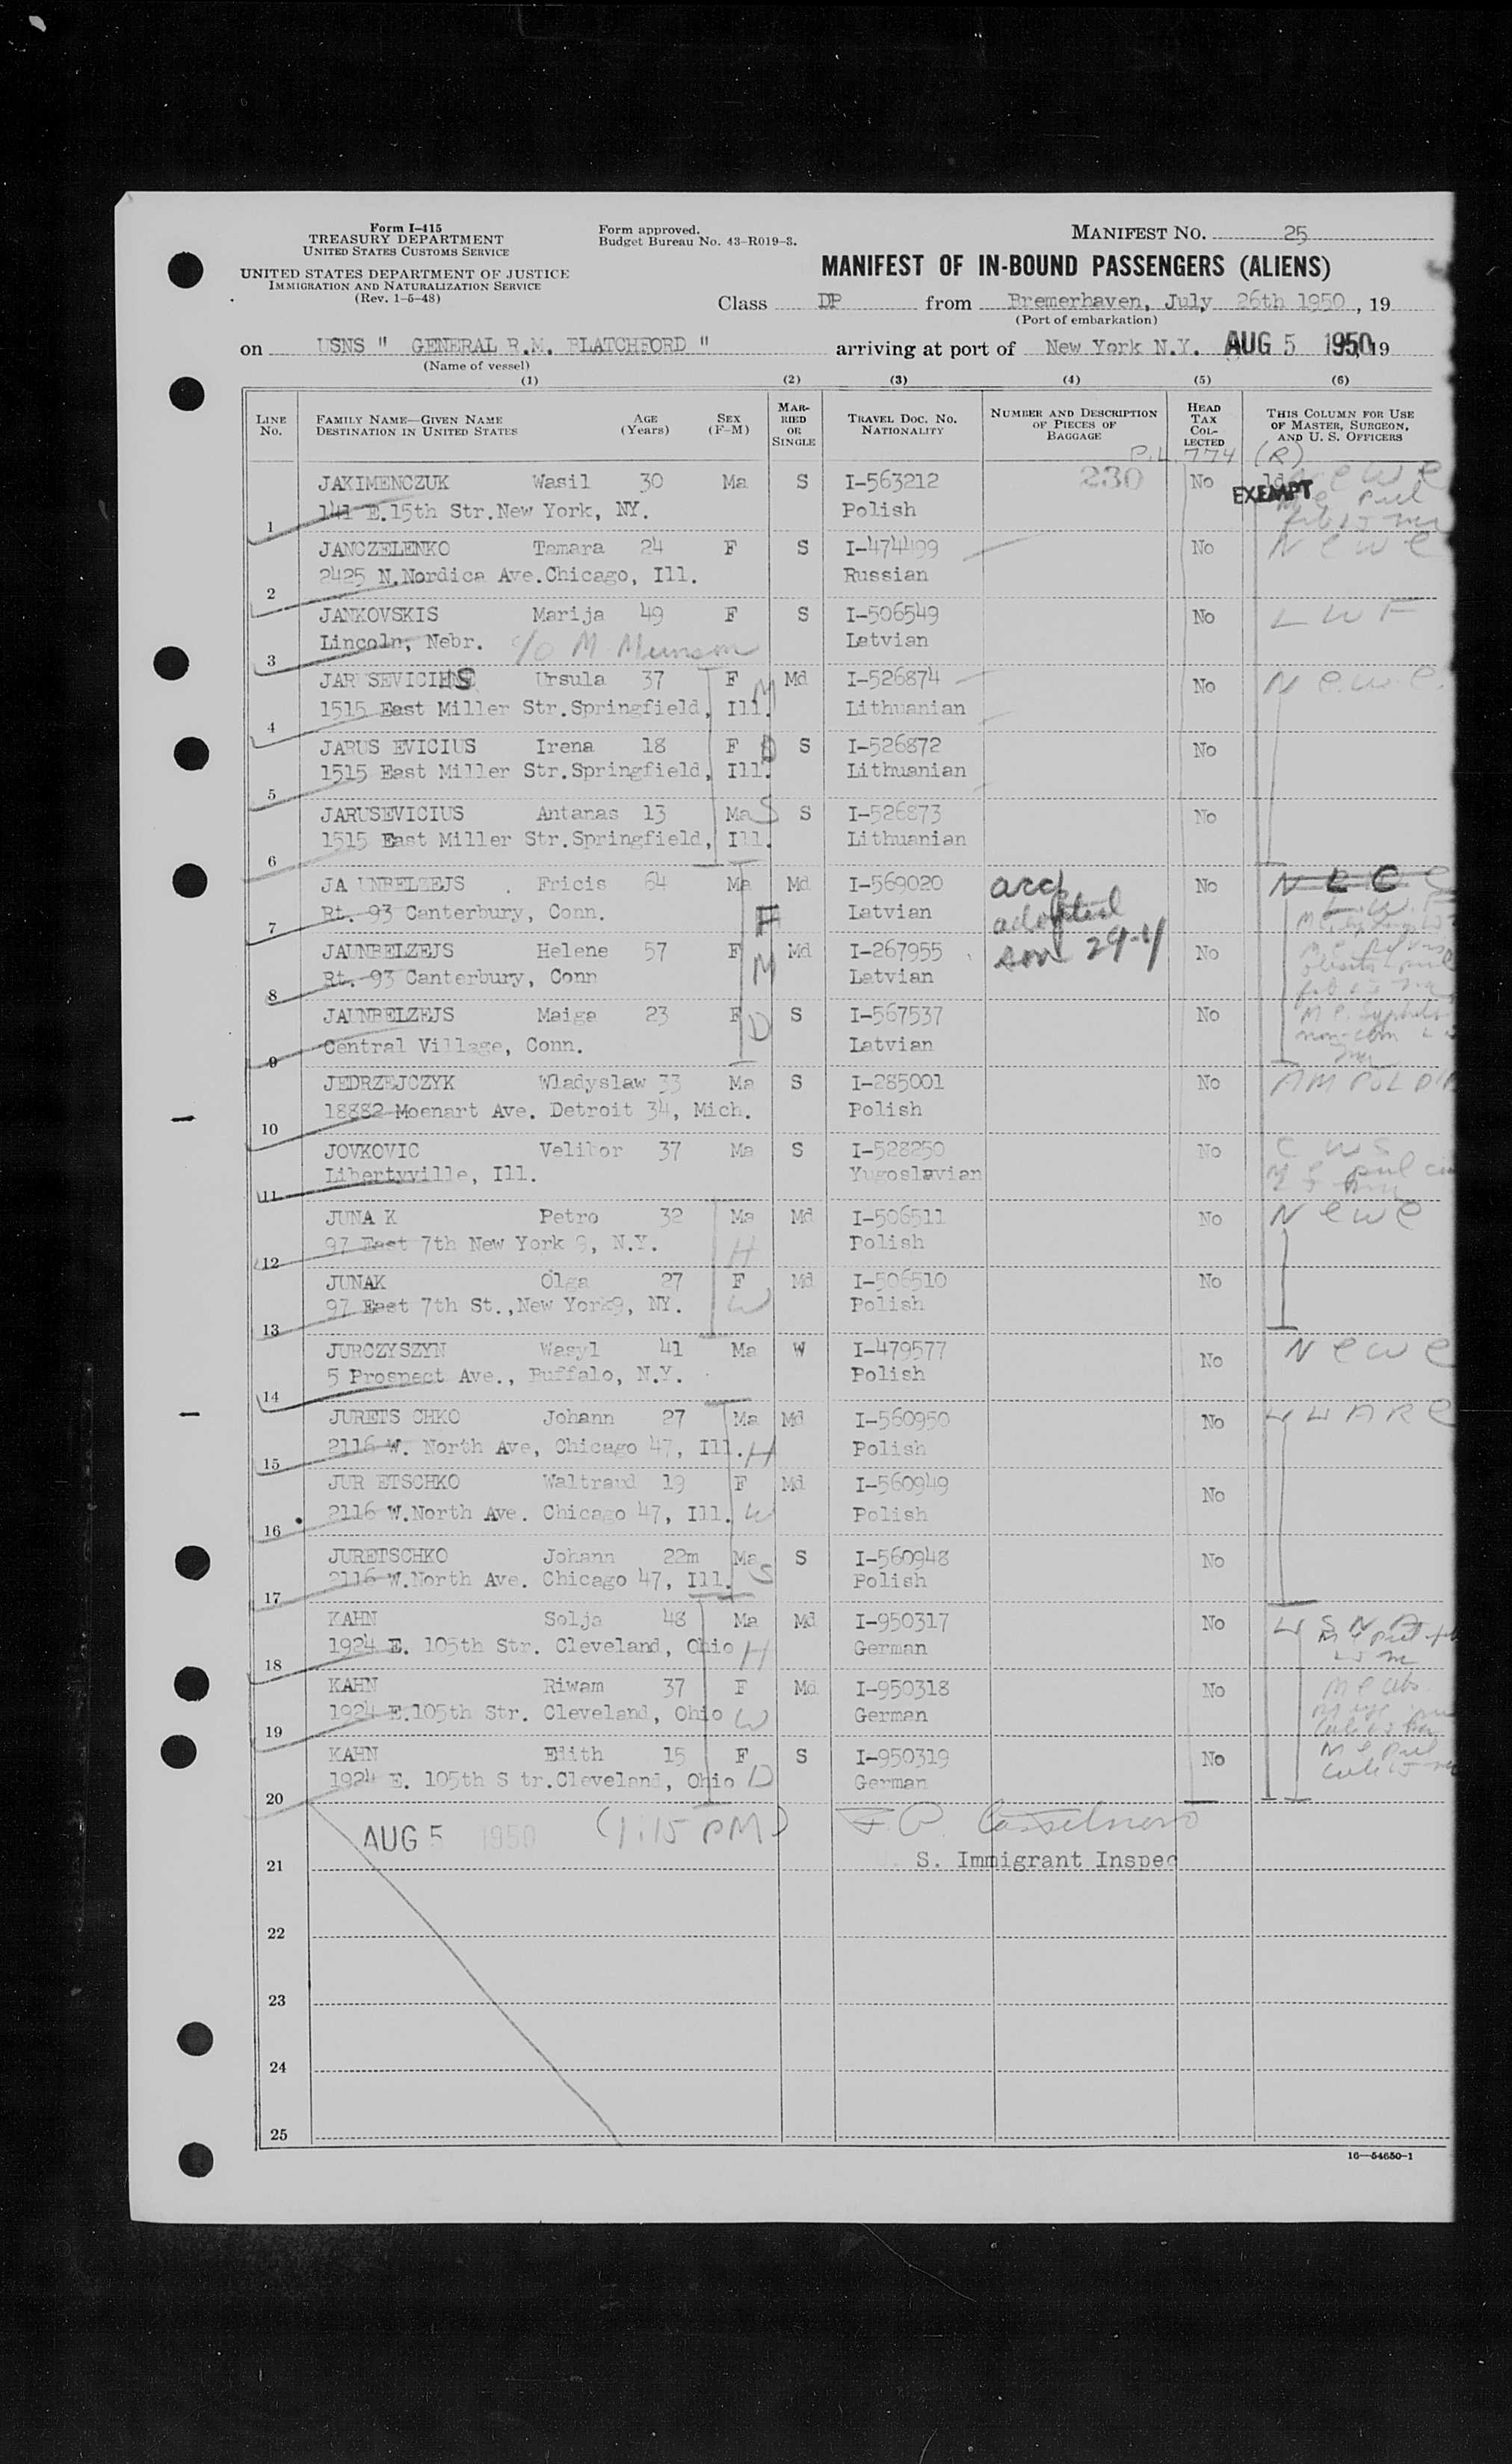 Form I-415
TREASURY DEPARTMENT
UNITED STATES CUSTOMS SERVICE
UNITED STATES DEPARTMENT OF JUSTICE
IMMIGRATION AND NATURALIZATION SERVICE
(Rev. 1-5-48)
Form approved.
Budget Bureau No. 43-R019-3.
MANIFEST NO. 25
MANIFEST OF IN-BOUND PASSENGERS (ALIENS)
Class DP from Bremerhaven, July 26th 1950, 19
(Port of embarkation)
on USNS " GENERAL R.M. BLATCHFORD " arriving at port of New York N.Y. AUG 5 1950 19
(Name of vessel)
(1) (2) (3) (4) (5) (6)
LINE No. FAMILY NAME—GIVEN NAME DESTINATION IN UNITED STATES AGE (Years) SEX (F-M) MARRIED OR SINGLE TRAVEL DOC. NO. NATIONALITY NUMBER AND DESCRIPTION OF PIECES OF BAGGAGE HEAD TAX COLLECTED THIS COLUMN FOR USE OF MASTER, SURGEON, AND U. S. OFFICERS
P.L. 774 (R)
JAKIMENCZUK Wasil 30 Ma S I-563212 230 No EXEMPT N e w e
1 141 E.15th Str.New York, NY. Polish
JANCZELENKO Tamara 24 F S I-474499 No N e w e
2 2425 N.Nordica Ave.Chicago, Ill. Russian
JANKOVSKIS Marija 49 F S I-506549 No L W F
3 Lincoln, Nebr. c/o M Munson Latvian
Ursula 37 F M Md I-526874 No N e.w.e.
4 1515 East Miller Str.Springfield, Ill. Lithuanian
JARUS EVICIUS Irena 18 F D S I-526872 No
5 1515 East Miller Str.Springfield, Ill. Lithuanian
JARUSEVICIUS Antanas 13 Ma S S I-526873 No
6 1515 East Miller Str.Springfield, Ill. Lithuanian
JA UNBELZEJS Fricis 64 Ma Md I-569020 No
L.W.F
7 Rt. 93 Canterbury, Conn. F Latvian adopted
JAUNBELZEJS Helene 57 F M Md I-267955 son 29-11 No
8 Rt. 93 Canterbury, Conn Latvian
JAUNBELZEJS Maiga 23 F D S I-567537 No
9 Central Village, Conn. Latvian
JEDRZEJCZYK Wladyslaw 33 Ma S I-285001 No AM POL
10 18882 Moenart Ave. Detroit 34, Mich. Polish
JOVKOVIC Velibor 37 Ma S I-528250 No C W S
11 Libertyville, Ill. Yugoslavian
JUNA K Petro 32 Ma H Md I-506511 No N e w e
12 97 East 7th New York 9, N.Y. Polish
JUNAK Olga 27 F W Md I-506510 No
13 97 East 7th St.,New York9, NY. Polish
JURCZYSZYN Wasyl 41 Ma W I-479577 No N e w e
14 5 Prospect Ave., Buffalo, N.Y. Polish
JURETS CHKO Johann 27 Ma Md I-560950 No
15 2116 W. North Ave, Chicago 47, Ill. H Polish
JUR ETSCHKO Waltraud 19 F Md I-560949 No
16 2116 W.North Ave. Chicago 47, Ill. W Polish
JURETSCHKO Johann 22m Ma S S I-560948 No
17 2116 W.North Ave. Chicago 47, Ill. Polish
KAHN Selja 48 Ma Md I-950317 No U S N A
18 1924 E. 105th Str. Cleveland, Ohio H German
KAHN Riwam 37 F Md I-950318 No
19 1924 E.105th Str. Cleveland, Ohio W German
KAHN Edith 15 F S I-950319 No
20 1924 E. 105th S tr.Cleveland, Ohio D German
AUG 5 1950 (1:15 PM)
21 S. Immigrant Inspec
22
23
24
25
16—54650-1